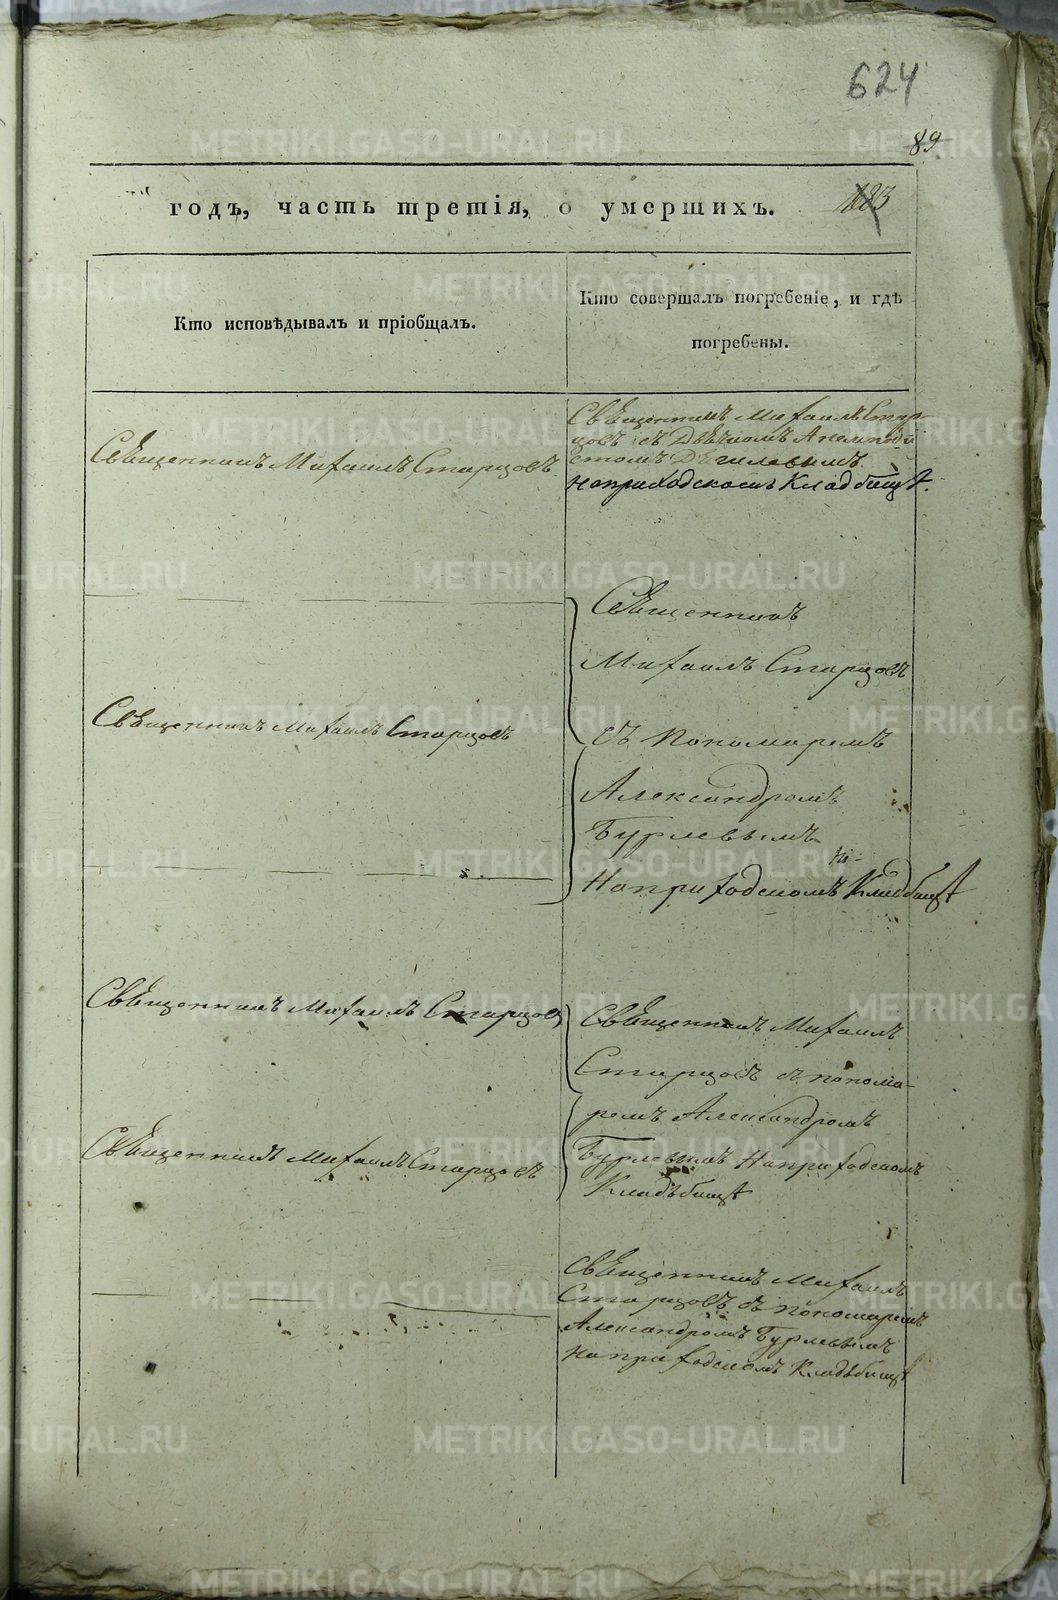 624
89
183
годъ, часть третія, о умершихъ.
Кто исповѣдывалъ и пріобщалъ.
Кто совершалъ погребеніе, и гдѣ
погребены.
Священникъ Михаилъ Старцовъ
Священникъ Михаилъ Стар-
цовъ съ Дьячкомъ
на приходскомъ Кладбищѣ.
Священникъ Михаилъ Старцовъ
Священникъ
Михаилъ Старцовъ
съ пономаремъ
Александромъ
Бурлевымъ
На приходскомъ Кладбищѣ
Священникъ Михаилъ Старцовъ
Священникъ Михаилъ Старцовъ
Священникъ Михаилъ
Старцовъ съ понома-
ремъ Александромъ
Бурлевымъ На приходскомъ
Кладъбищѣ
Священникъ Михаилъ
Старцовъ съ пономаремъ
Александромъ Бурлевымъ
на приходскомъ Кладъбищѣ
METRIKI.GASO-URAL.RU